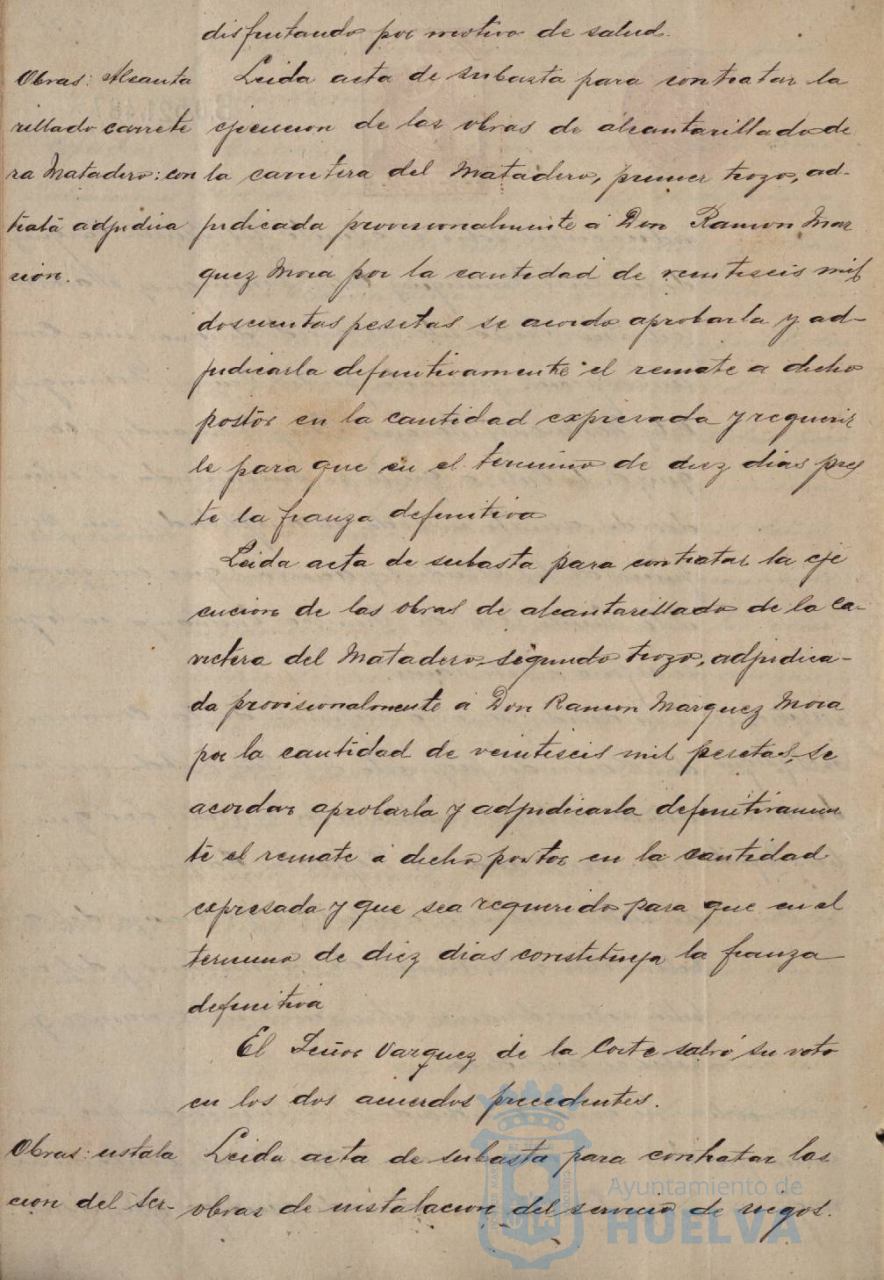 disfrutando por motivo de salud.
Obras: Alcanta
rillado carrete
ra Matadero: con
trata adjudica
ción.
Leida acta de subasta para contratar la
ejecucion de las obras de alcantarillado de
la carretera del Matadero, primer trozo, ad-
judicada provisionalmente á Don Ramon Mar
quez Mora por la cantidad de veintiseis mil
doscientas pesetas se acordo aprobarla y ad-
judicarla definitivamente el remate a dicho
postor en la cantidad expresada y requerir
le para que en el termino de diez dias pres
te la fianza definitiva
Leida acta de subasta para contratar la eje
cucion de las obras de alcantarillado de la ca-
rretera del Matadero, segundo trozo, adjudica-
da provisionalmente á Don Ramon Marquez Mora
por la cantidad de veintiseis mil pesetas, se
acordar aprobarla y adjudicarla definitivamen
te el remate á dicho postor en la cantidad
expresada y que sea requerido para que en el
termino de diez dias constituya la fianza
definitiva
El Señor Vazquez de la Corte salvó su voto
en los dos acuerdos precedentes.
Obras: instala
cion del ser-
Leida acta de subasta para contratar las
obras de instalacion del servicio de riegos.
Ayuntamiento de
HUELVA